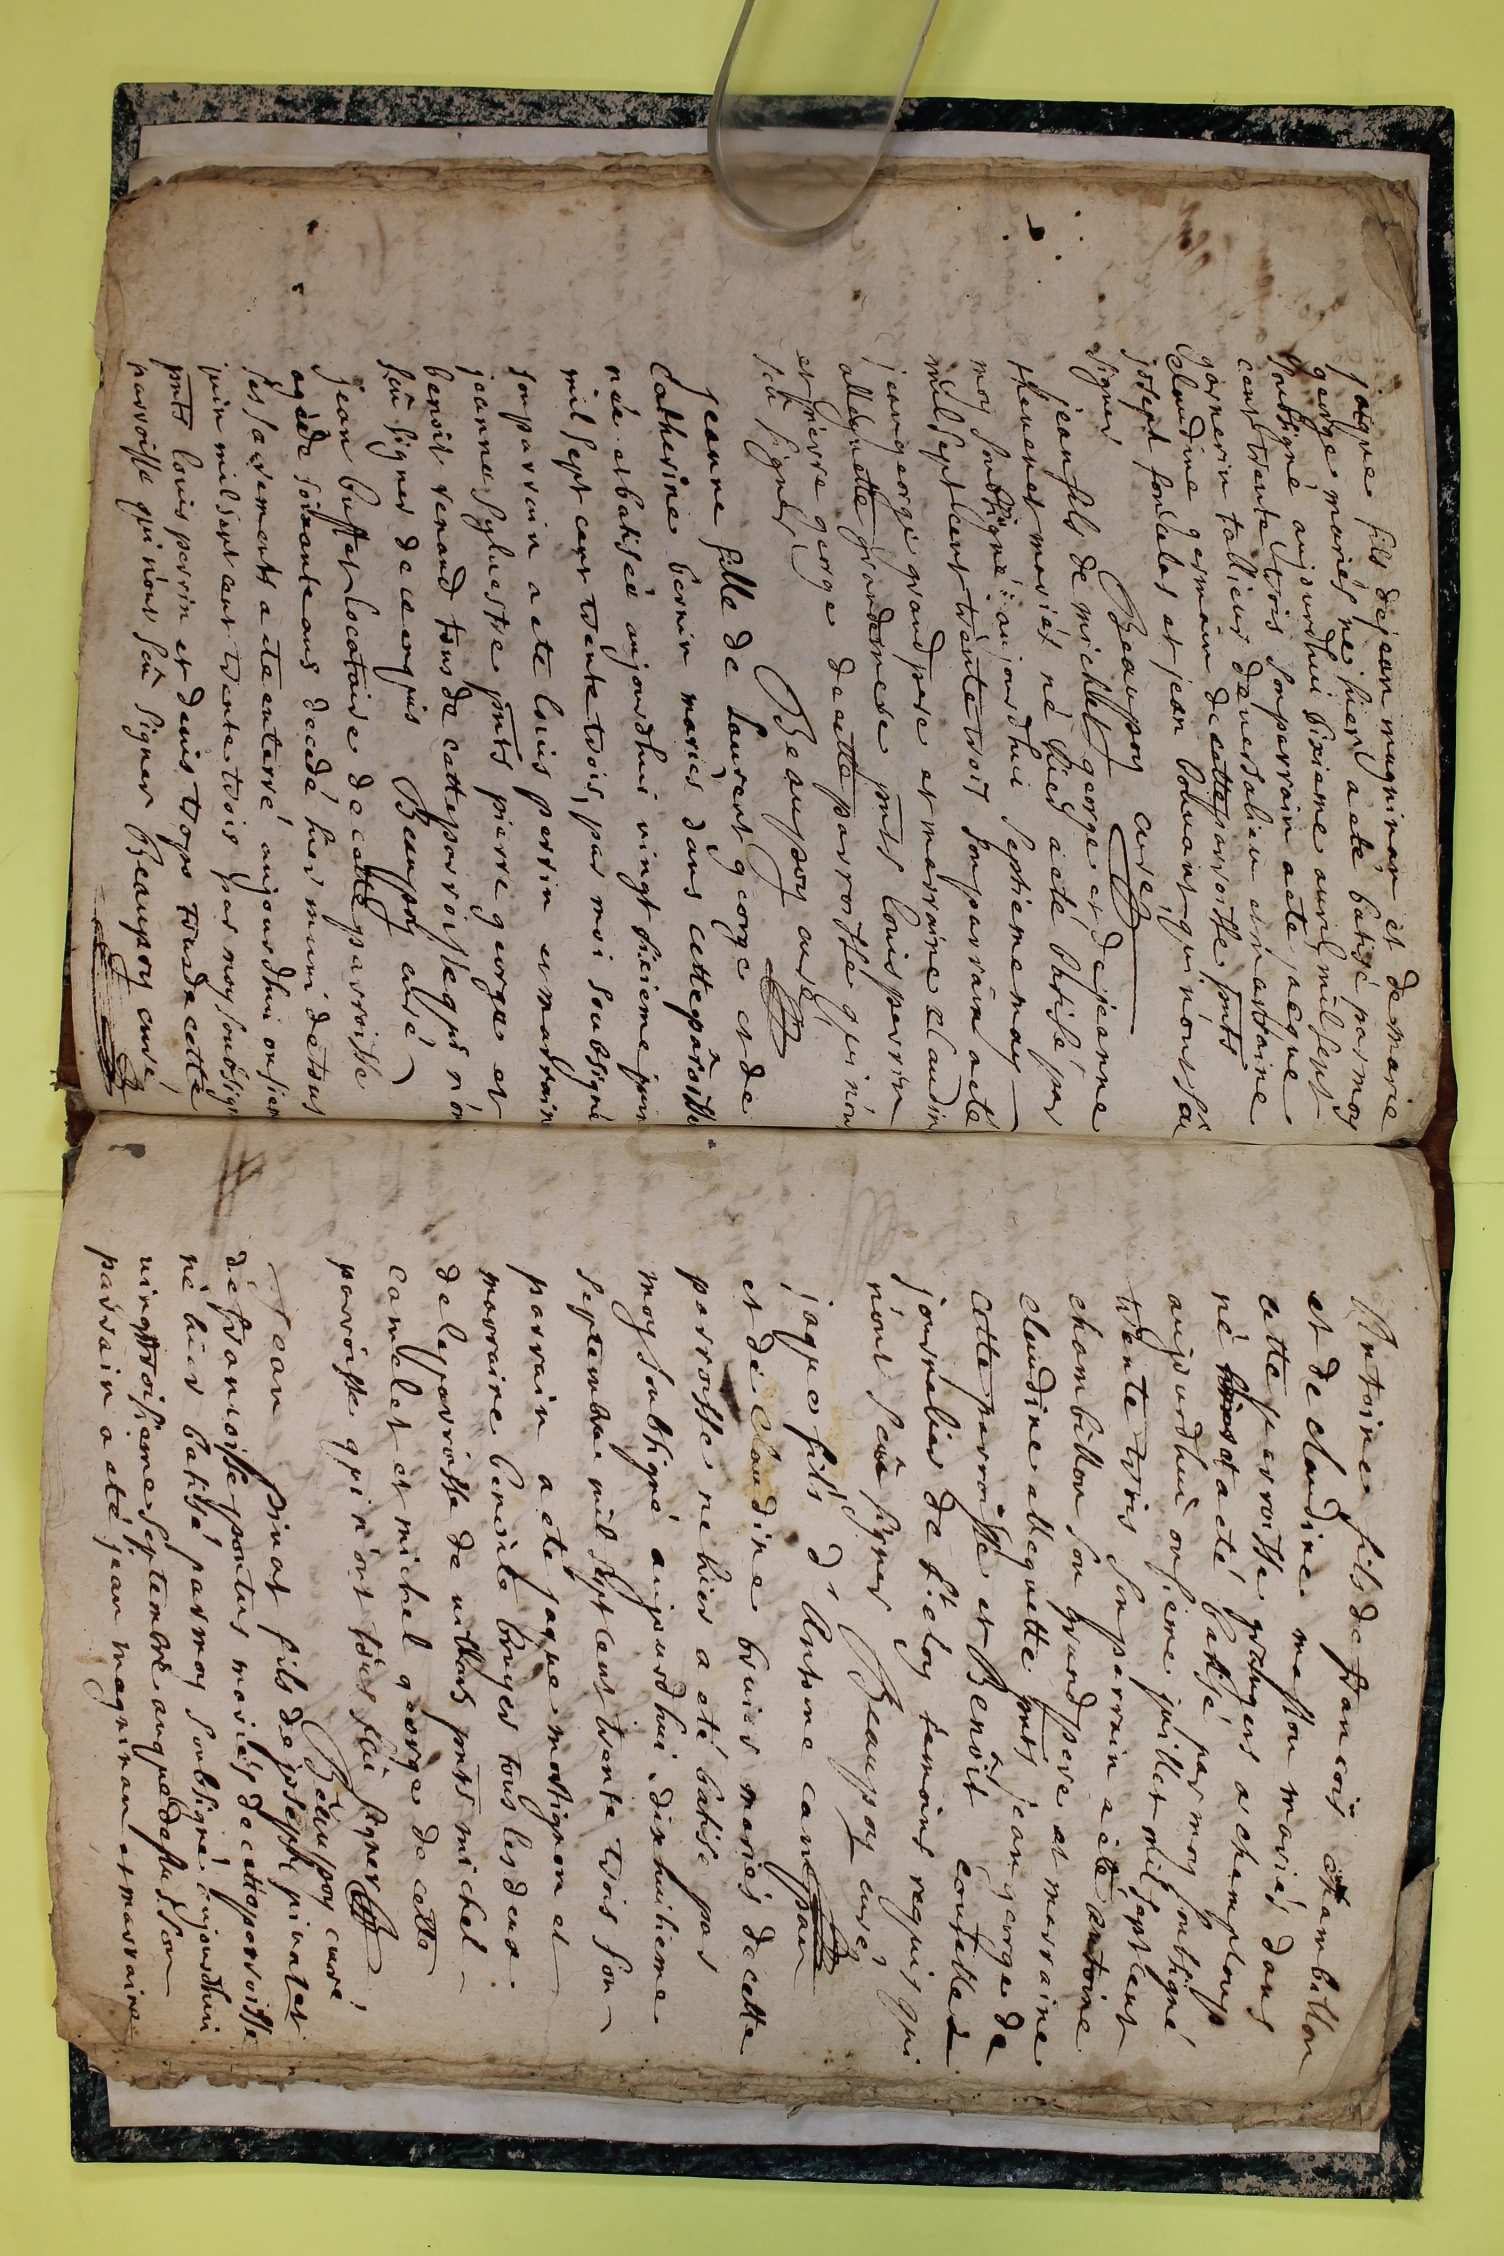 jacque fils de jean magninan et de marie
george mariés né hier a eté batisé par moy
soubsigné aujourdhui sixieme avril mil sept
cent trente trois son parrain a ete jacque
garnerin tallieur et marraine
claudine germain de cette parroisse pnts
joseph et jean qui n'ont sçu
signer Beaupoy curé
jean fils de michel george et de jeanne
thevenet mariés né hier a eté batisé par
moy soubsigné aujourdhui septieme may
mil sept cent trente trois son parrain a eté
jean george grand pere et marraine claudine
alleguette grandmere pnts louis perrin
et pierre george de cette parroisse qui n'on
sçu signer Beaupoy curé
jeanne fille de laurent george et de
catherine bernin mariés dans cette paroisse
née et batisée aujourdhui vingt sixieme juin
mil sept cent trente trois, par moi soubsigné
son parrain a ete louis perrin et marraine
jeanne sylvestre pnts pierre george et
benoit renaud tous de cette parroisse qui n'on
sçu signer de ce enquis Beaupoy curé
jean buffet locataire de cette parroisse
agé de soixante ans decedé hier muni de tous
ses sacrements a ete enterré aujourdhui onsiem
juin mil sept cent trente trois par moy soubsigné
pnts louis perrin et denis tous de cette
parroisse qui n'ont sçu signer Beaupoy curé
Antoine fils de francois chambillon
et de claudine masson mariés dans
cette parroisse grangers a champloup
né a eté batisé par moy soubsigné
aujourdhui onsieme juillet mil sept cent
trente trois son parrain a eté antoine
chambillon son grand pere et marraine
claudine alleguette pnts jean george de
cette parroisse et Benoit
journalier de St eloy temoins requis qui
n'ont sceu signer Beaupoy curé
jaques fils d'Antoine
et de claudine bruier mariés de cette
parroisse né hier a eté batisé par
moy soubsigné aujourdhui dixhuitieme
septembre mil sept cent trente trois son
parrain a eté jaque matignon et
marraine benoite bruyer tous les deux
de la parroisse de pnts michel
camelet et michel george de cette
parroisse qui n'ont sçu signer
Beaupoy curé
Jean pinat fils de joseph pinat et
de francoise mariés de cette parroisse
né hier batisé par moy soubsigné aujourdhui
vingttroisieme septembre an que dessus son
parrain a eté jean magninan et marraine